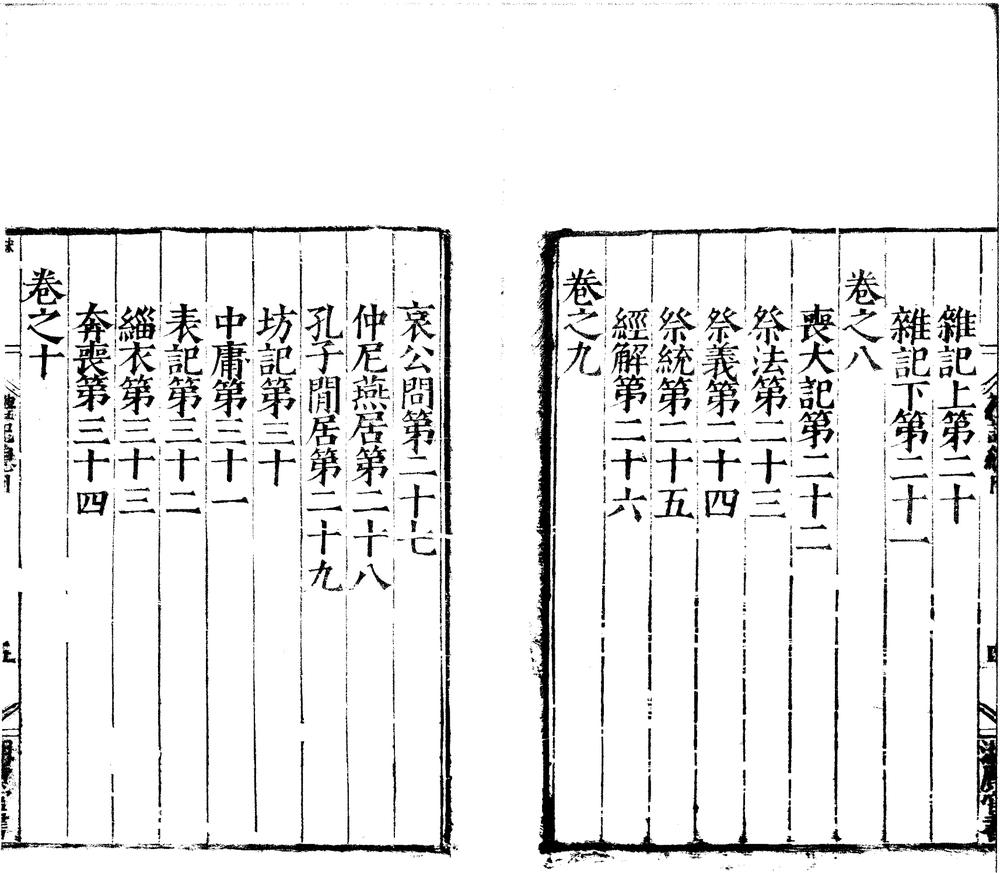 雜記上第二十
雜記下第二十一
卷之八
喪大記第二十二
祭法第二十三
祭義第二十四
祭統第二十五
經解第二十六
卷之九
哀公問第二十七
仲尼燕居第二十八
孔子閒居第二十九
坊記第三十
中庸第三十一
表記第三十二
緇衣第三十三
奔喪第三十四
卷之十